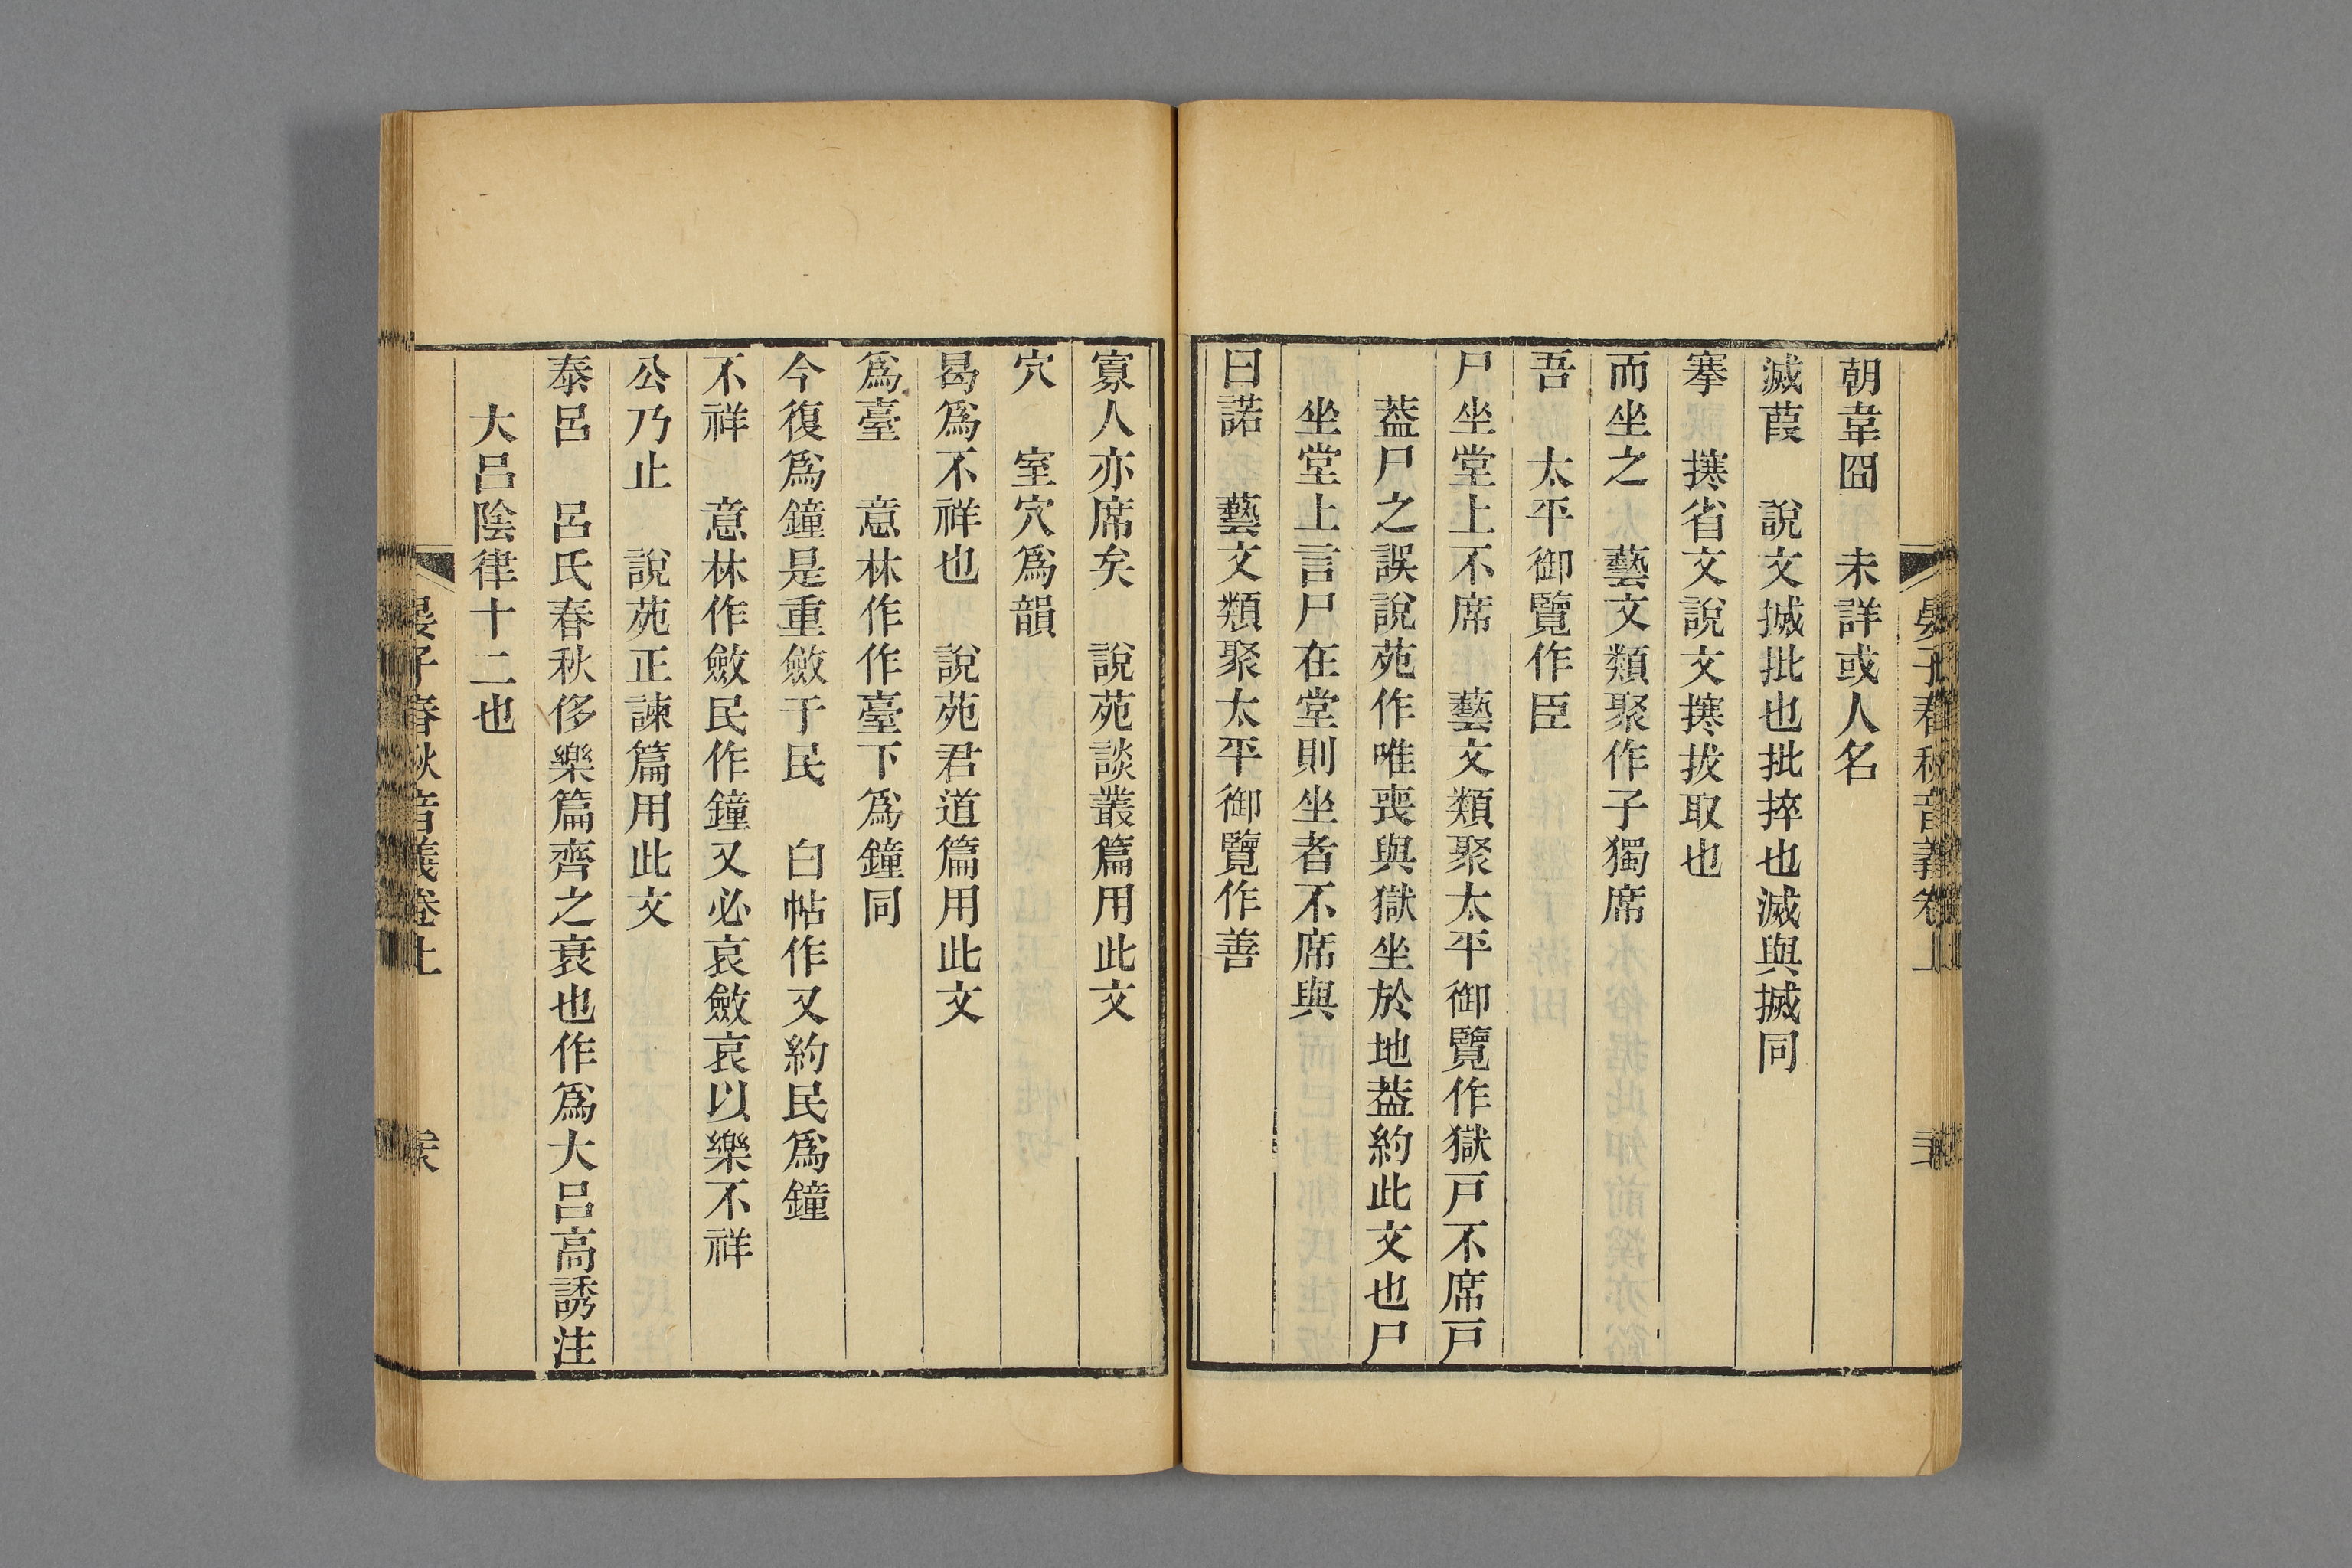 朝韋囧　未詳或人名
滅葭　說文搣批也批捽也滅與搣同
搴　㩃省文說文㩃拔取也
而坐之　藝文類聚作子獨席
吾　太平御覽作臣
尸坐堂上不席　藝文類聚太平御覽作獄戸不席戸
蓋尸之誤說苑作唯喪與獄坐於地蓋約此文也尸
坐堂上言尸在堂則坐者不席與
曰諾　藝文類聚太平御覽作善
寡人亦席矣　說苑談叢篇用此文
穴　室穴爲韻
曷爲不祥也　說苑君道篇用此文
爲臺　意林作作臺下爲鐘同
今復爲鐘是重斂于民　白帖作又約民爲鐘
不祥　意林作斂民作鐘又必哀斂哀以樂不祥
公乃止　說苑正諫篇用此文
泰呂　呂氏春秋侈樂篇齊之衰也作爲大呂高誘注
大呂陰律十二也
晏子春秋音義卷上